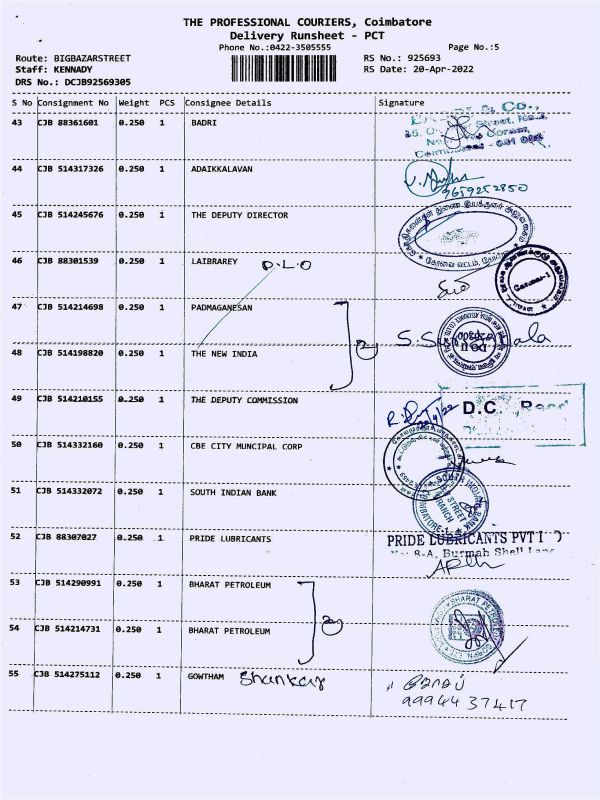 THE PROFESSIONAL COURIERS, Coimbatore
Delivery Runsheet - PCT
Phone No.:0422-3505555 Page No.:5
Route: BIGBAZARSTREET RS No.: 925693
Staff: KENNADY RS Date: 20-Apr-2022
DRS No.: DCJB92569305
S No Consignment No Weight PCS Consignee Details Signature
43 CJB 88361601 0.250 1 BADRI
& Co.,
44 CJB 514317326 0.250 1 ADAIKKALAVAN
9659252850
45 CJB 514245676 0.250 1 THE DEPUTY DIRECTOR
46 CJB 88301539 0.250 1 LAIBRAREY D.L.O
கோவை-1
47 CJB 514214698 0.250 1 PADMAGANESAN
2
48 CJB 514198820 0.250 1 THE NEW INDIA
49 CJB 514210155 0.250 1 THE DEPUTY COMMISSION
D.C.
50 CJB 514332160 0.250 1 CBE CITY MUNCIPAL CORP
51 CJB 514332072 0.250 1 SOUTH INDIAN BANK
SOUTH INDIAN BANK
52 CJB 88307027 0.250 1 PRIDE LUBRICANTS
PRIDE LUBRICANTS PVT
8-A, Burmah Shell Lane
53 CJB 514290991 0.250 1 BHARAT PETROLEUM
2
54 CJB 514214731 0.250 1 BHARAT PETROLEUM
BHARAT PETROLEUM
55 CJB 514275112 0.250 1 GOWTHAM Shankar
99944 37417